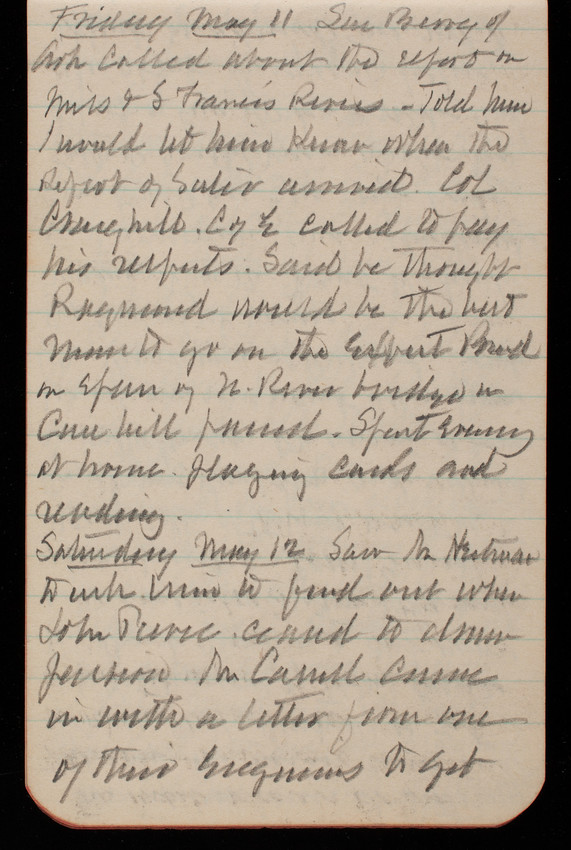 Friday May 11 Sen Berry of
Ark called about the report on
Miss & S Francis Rivers - Told him
I would let him know when the
Report of Suter arrived. Col
Craighill. C of E called to pay
his respects. Said he thought
Raymond would be the best
man to go on the Expert Board
on Span of N. River bridge in
Case bill passed. Spent Evening
at home playing cards and
reading.
Saturday May 12 Saw Mr
to ask him to find out when
John Pierce ceased to draw
pension. Mr Carroll came
in with a letter from one
of their to get